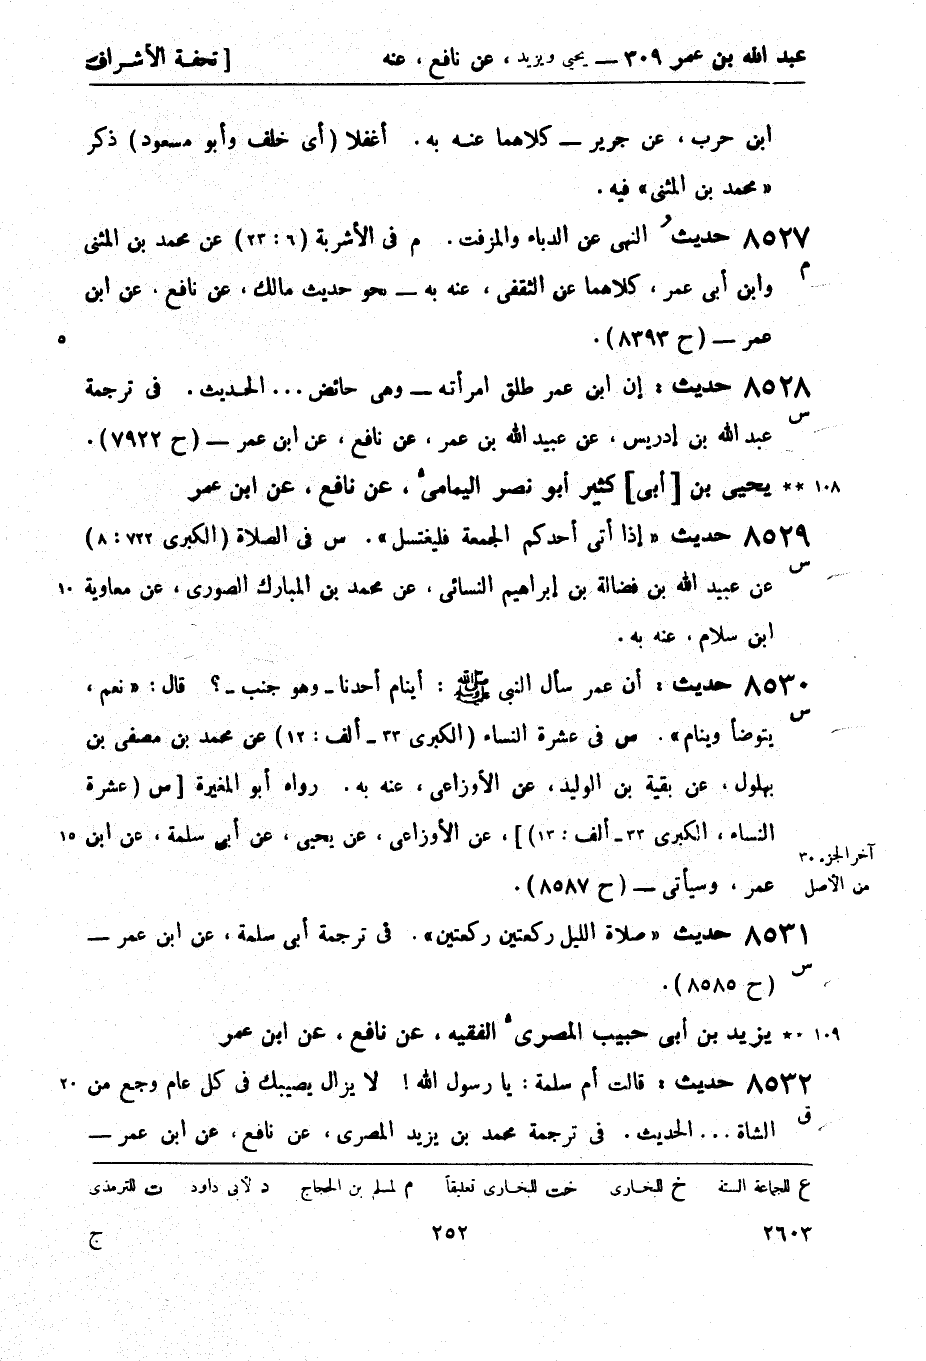 عبد الله بن عمر ٣٠٩ — يحيى ويزيد ، عن نافع ، عنه [ تحفة الأشراف
ابن حرب ، عن جرير — كلاهما عنه به . أغفلا (أى خلف وأبو مسعود) ذكر
« محمد بن المثنى » فيه .
٨٥٢٧ حديث النهى عن الدباء والمزفت . م فى الأشربة (٦ : ٢٣) عن محمد بن المثنى
م
وابن أبى عمر ، كلاهما عن الثقفى ، عنه به — نحو حديث مالك ، عن نافع . عن ابن
عمر — (ح ٨٣٩٣) . ٥
٨٥٢٨ حديث : إن ابن عمر طلق امرأته — وهى حائض ... الحديث . فى ترجمة
س
عبد الله بن إدريس ، عن عبيد الله بن عمر ، عن نافع ، عن ابن عمر — (ح ٧٩٢٢) .
١٠٨ ** يحيى بن [أبى] كثير أبو نصر اليمامى ، عن نافع ، عن ابن عمر
٨٥٢٩ حديث « إذا أتى أحدكم الجمعة فليغتسل» . س فى الصلاة (الكبرى ٧٢٢ : ٨)
س
عن عبيد الله بن فضالة بن إبراهيم النسائى ، عن محمد بن المبارك الصورى ، عن معاوية ١٠
ابن سلام ، عنه به .
٨٥٣٠ حديث : أن عمر سأل النبى ﷺ : أينام أحدنا ـ وهو جنب ـ ؟ قال : « نعم ،
س
يتوضأ وينام» . س فى عشرة النساء (الكبرى ٣٣ ـ ألف : ١٢) عن محمد بن مصفى بن
بهلول ، عن بقية بن الوليد ، عن الأوزاعى ، عنه به . رواه أبو المغيرة [ س (عشرة
النساء ، الكبرى ٣٣ ـ ألف : ١٣) ] ، عن الأوزاعى ، عن يحيى ، عن أبى سلمة ، عن ابن ١٥
آخر الجزء ٣٠
عمر ، وسيأتى — (ح ٨٥٨٧) .
من الأصل
٨٥٣١ حديث « صلاة الليل ركعتين ركعتين» . فى ترجمة أبى سلمة ، عن ابن عمر —
س
(ح ٨٥٨٥) .
١٠٩ ** يزيد بن أبى حبيب المصرى الفقيه ، عن نافع ، عن ابن عمر
٨٥٣٢ حديث : قالت أم سلمة : يا رسول الله ! لا يزال يصيبك فى كل عام وجع من ٢٠
ق
الشاة ... الحديث . فى ترجمة محمد بن يزيد المصرى ، عن نافع ، عن ابن عمر —
ع للجماعة الستة خ للبخارى خت للبخارى تعليقاً م لمسلم بن الحجاج د لأبى داود ت للترمذى
٢٦٠٣ ٢٥٢ ج